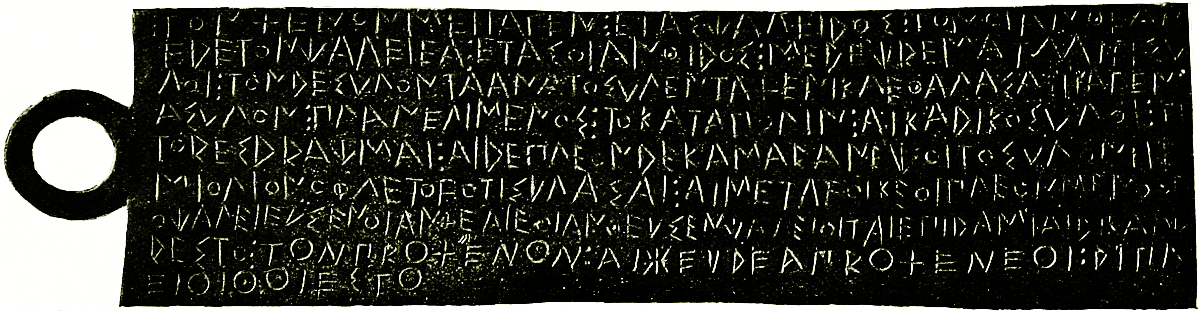 ΤΟΝΧΕΝΟΝΜΕΗΑΓΕΝ:ΕΤΑΣΨΑΛΕΙΔΟΣ:ΤΟΝΟΙΑΝΘΕΑΜ
ΕΔΕΤΟΝΨΑΛΕΙΕΑ:ΕΤΑΣΟΙΑΝΘΙΔΟΣ:ΜΕΔΕΨΡΕΜΑΤΑΑΙΤΙΣΥ
ΛΟΙ:ΤΟΝΔΕΣΥΛΟΝΤΑΑΝΑΤΟΣΥΛΕΝΤΑΧΕΝΙΚΑΕΘΑΛΑΣΑΣΗΑΓΕΝ
ΑΣΥΛΟΝ:ΠΛΑΝΕΛΙΜΕΝΟΣ:ΤΟΚΑΤΑΠΟΛΙΝ:ΑΙΚΑΔΙΚΟΣΥΛΟΙ:ΤΕ
ΤΟΡΕΣΔΡΑΨΜΑΙ:ΑΙΔΕΠΛΕΟΝΔΕΚΑΜΑΡΑΝΕΨΟΙΤΟΣΥΛΟΝΗΕ
ΜΙΟΛΙΟΝΟΦΛΕΤΟϜΟΤΙΣΥΛΑΣΑΙ:ΑΙΜΕΤΑϜΟΙΚΕΟΙΠΛΕΟΝΜΕΝΟΣΕ
ΟΨΑΛΕΙΕΥΣΕΝΟΙΑΝΘΕΑΙΕΟΙΑΝΘΕΥΣΕΝΨΑΛΕΙΟΙΤΑΙΕΠΙΔΑΜΙΑΙΔΙΚΑΙΨ
ΡΕΣΤΟ:ΤΟΝΠΡΟΧΕΝΟΝ:ΑΙΨΕΥΔΕΑΠΡΟΧΕΝΕΟΙ:ΔΙΠΛ
ΕΙΟΙΘΟΙΕΣΤΟ